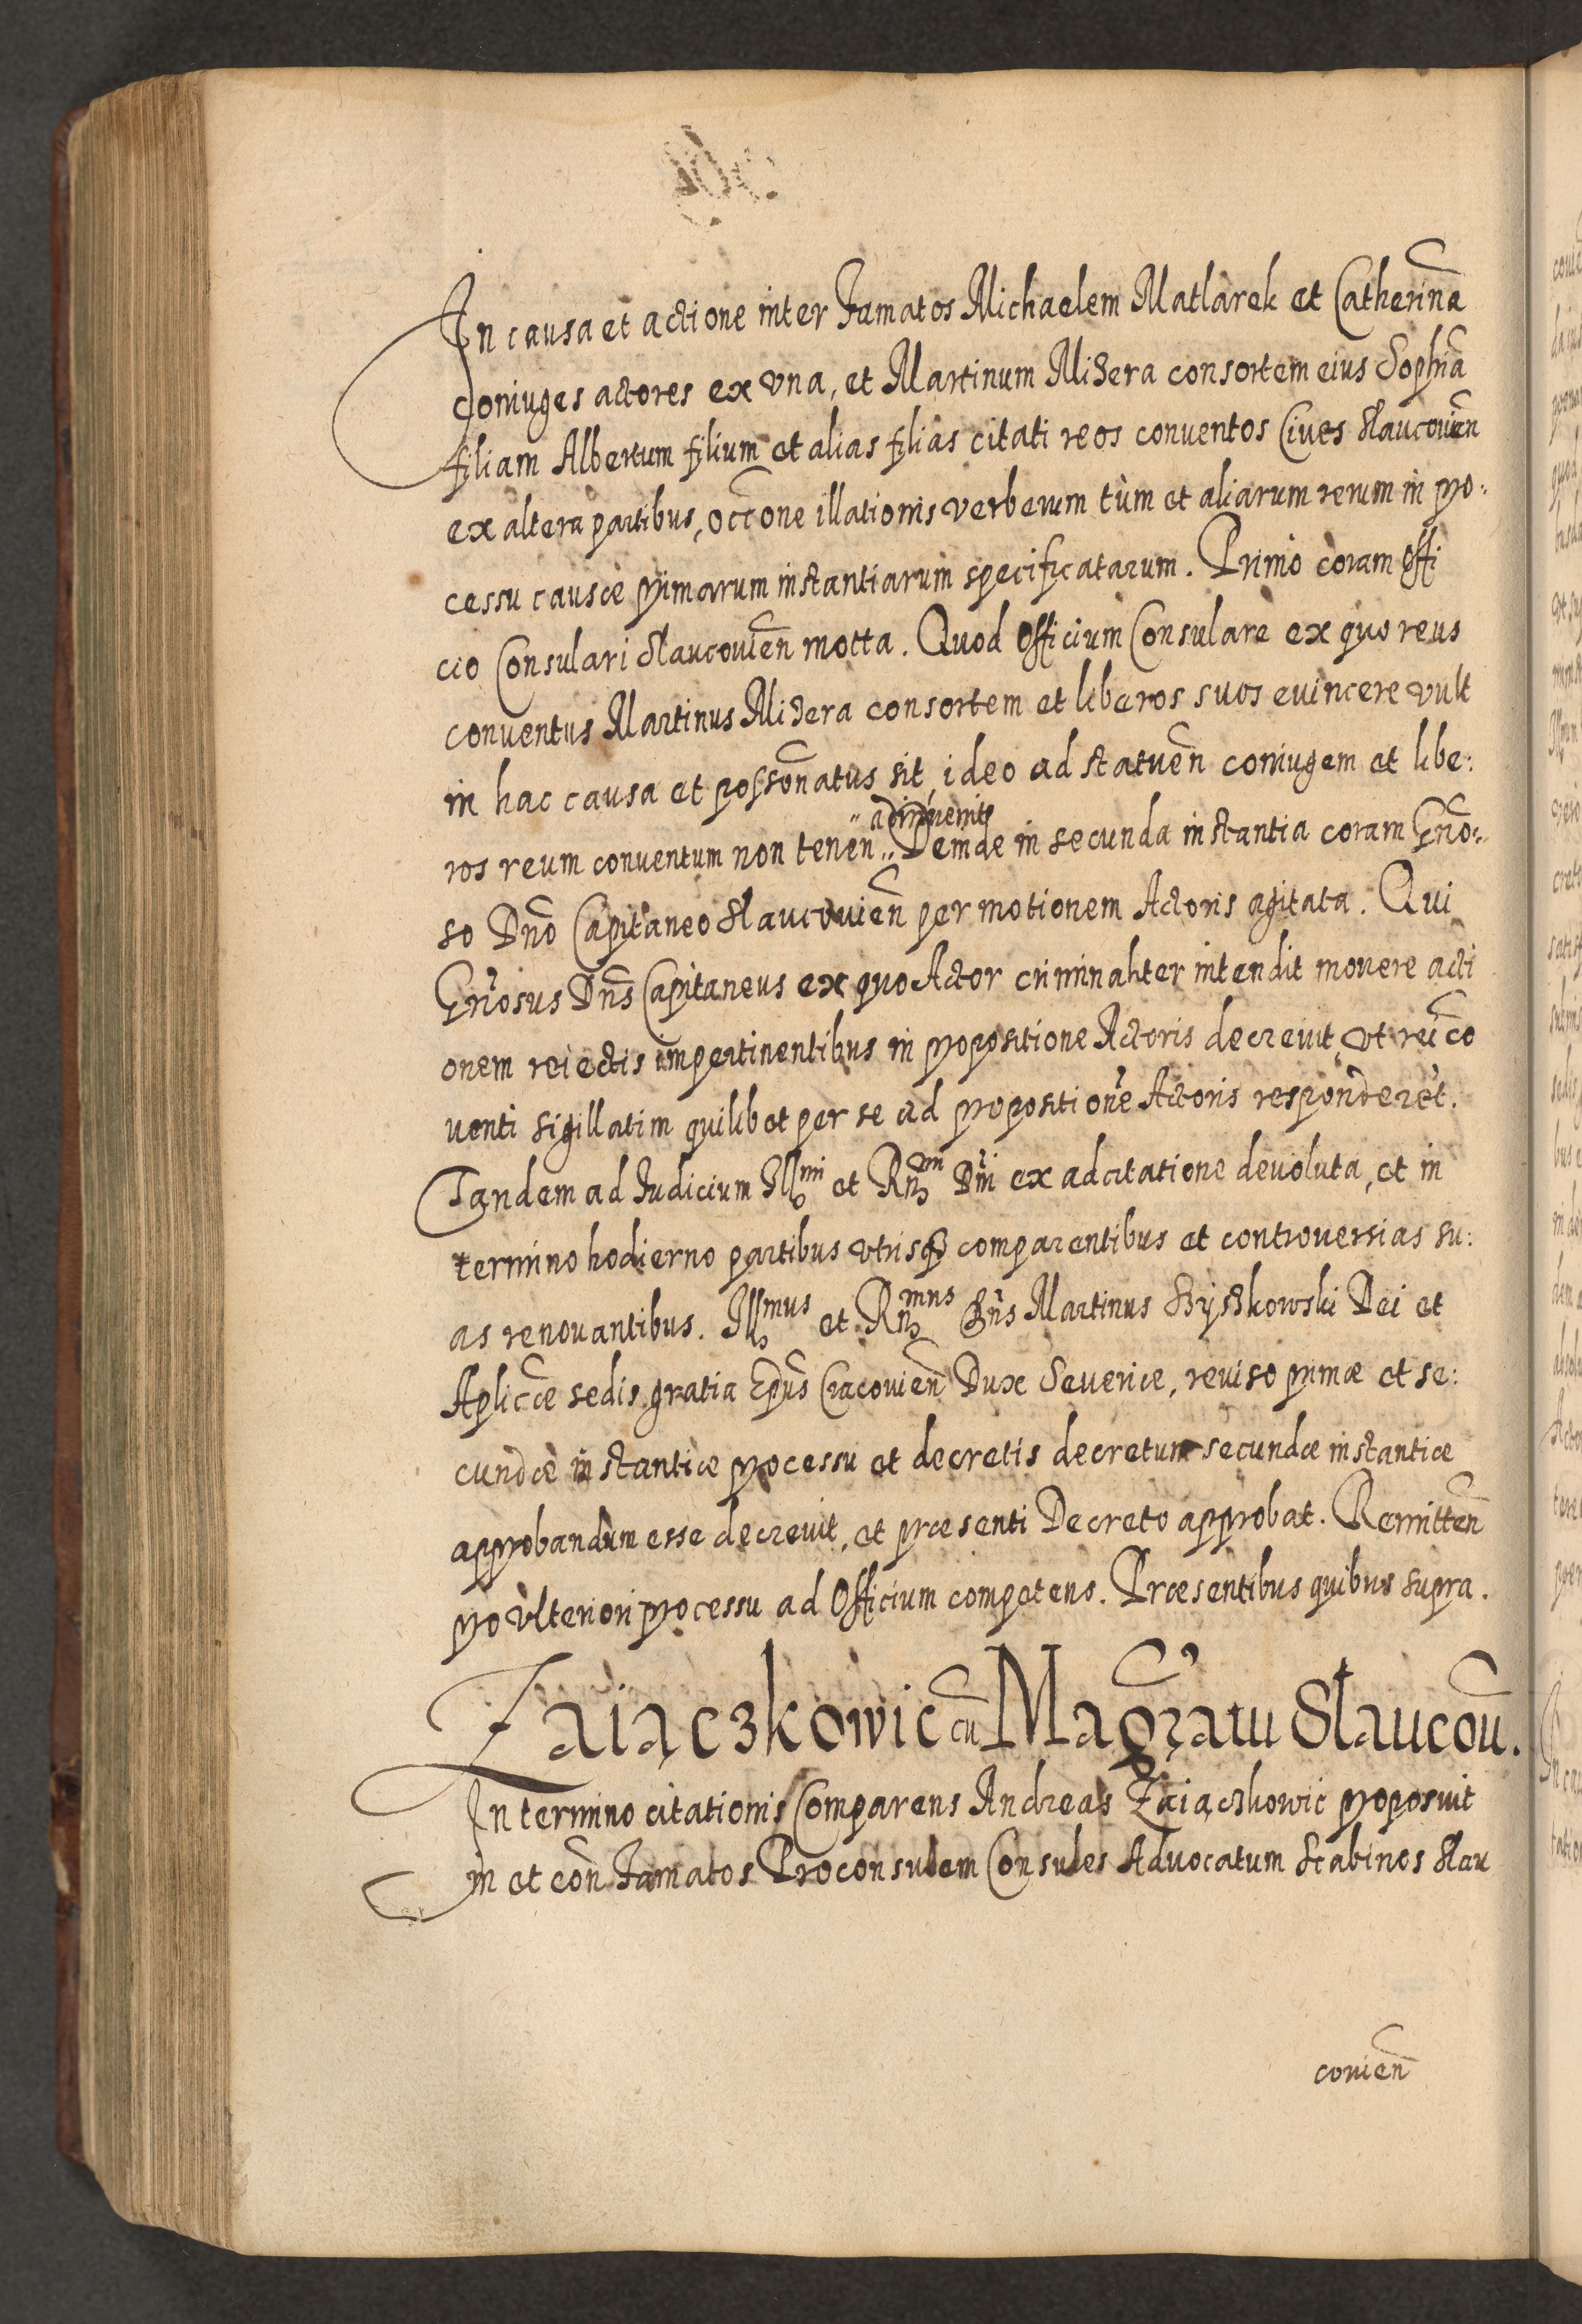 In causa et actione inter Famatos Michaelem Matlarek et Catherina̅
Coniuges actores ex vna, et Martinum Mizera consortem eius Sophia̅
filiam Albertum filium et alias filias citati reos conuentos Ciues Slaucouien̅
ex altera partibus, occ̅one illationis verberum tum et aliarum rerum in pro:
cessu causæ primarum instantiarum specificatarum. Primo coram Offi
cio Consulari Slaucouien̅ motta. Quod Officium Consulare ex quo reus
conuentus Martinus Mizera consortem et liberos suos euincere vult
in hac causa et posson̅atus sit, ideo ad statuen̅ coniugem et libe:
adinuenit
ros reum conuentum non tenen̅ „ Deinde in secunda instantia coram Gn̅o:
so Dn̅o Capitaneo Slaucouien̅ per motionem Actoris agitata. Qui
Gn̅osus Dn̅s Capitaneus ex quo Actor criminaliter intendit mouere acti
onem reiectis impertinentibus in propositione Actoris decreuit, vt rei co̅
uenti sigillatim quilibet per se ad propositione̅ Actoris responderet.
Tandem ad Iudicium Ill^mi et Rn^mi Dn̅i ex adcitatione deuoluta, et in
termino hodierno partibus vtrisq₃ comparentibus et controuersias su:
as renouantibus. Ill^mus et Rn^mus Dn̅s Martinus Szyszkowski Dei et
Aplic̅æ sedis gratia Ep̅us Cracouien̅ Dux Seueriæ, reuiso primæ et se:
cundæ instantiæ processu et decretis decretum secundæ instantiæ
approbandum esse decreuit, et præsenti Decreto approbat. Remitten̅
pro vlteriori processu ad Officium competens. Præsentibus quibus supra.
Zaiączkowic cu̅ Mag̅ratu Slaucou̅.
In termino citationis Comparens Andreas Zaiączkowic proposuit
in et con̅ Famatos Proconsulem Consules Aduocatum Scabinos Slau
couien̅